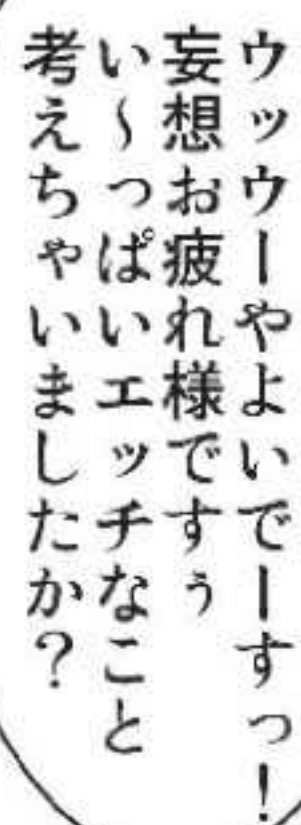 ウッウーやよいでーすっ!
妄想お疲れ様ですぅ
い～っぱいエッチなこと
考えちゃいましたか?